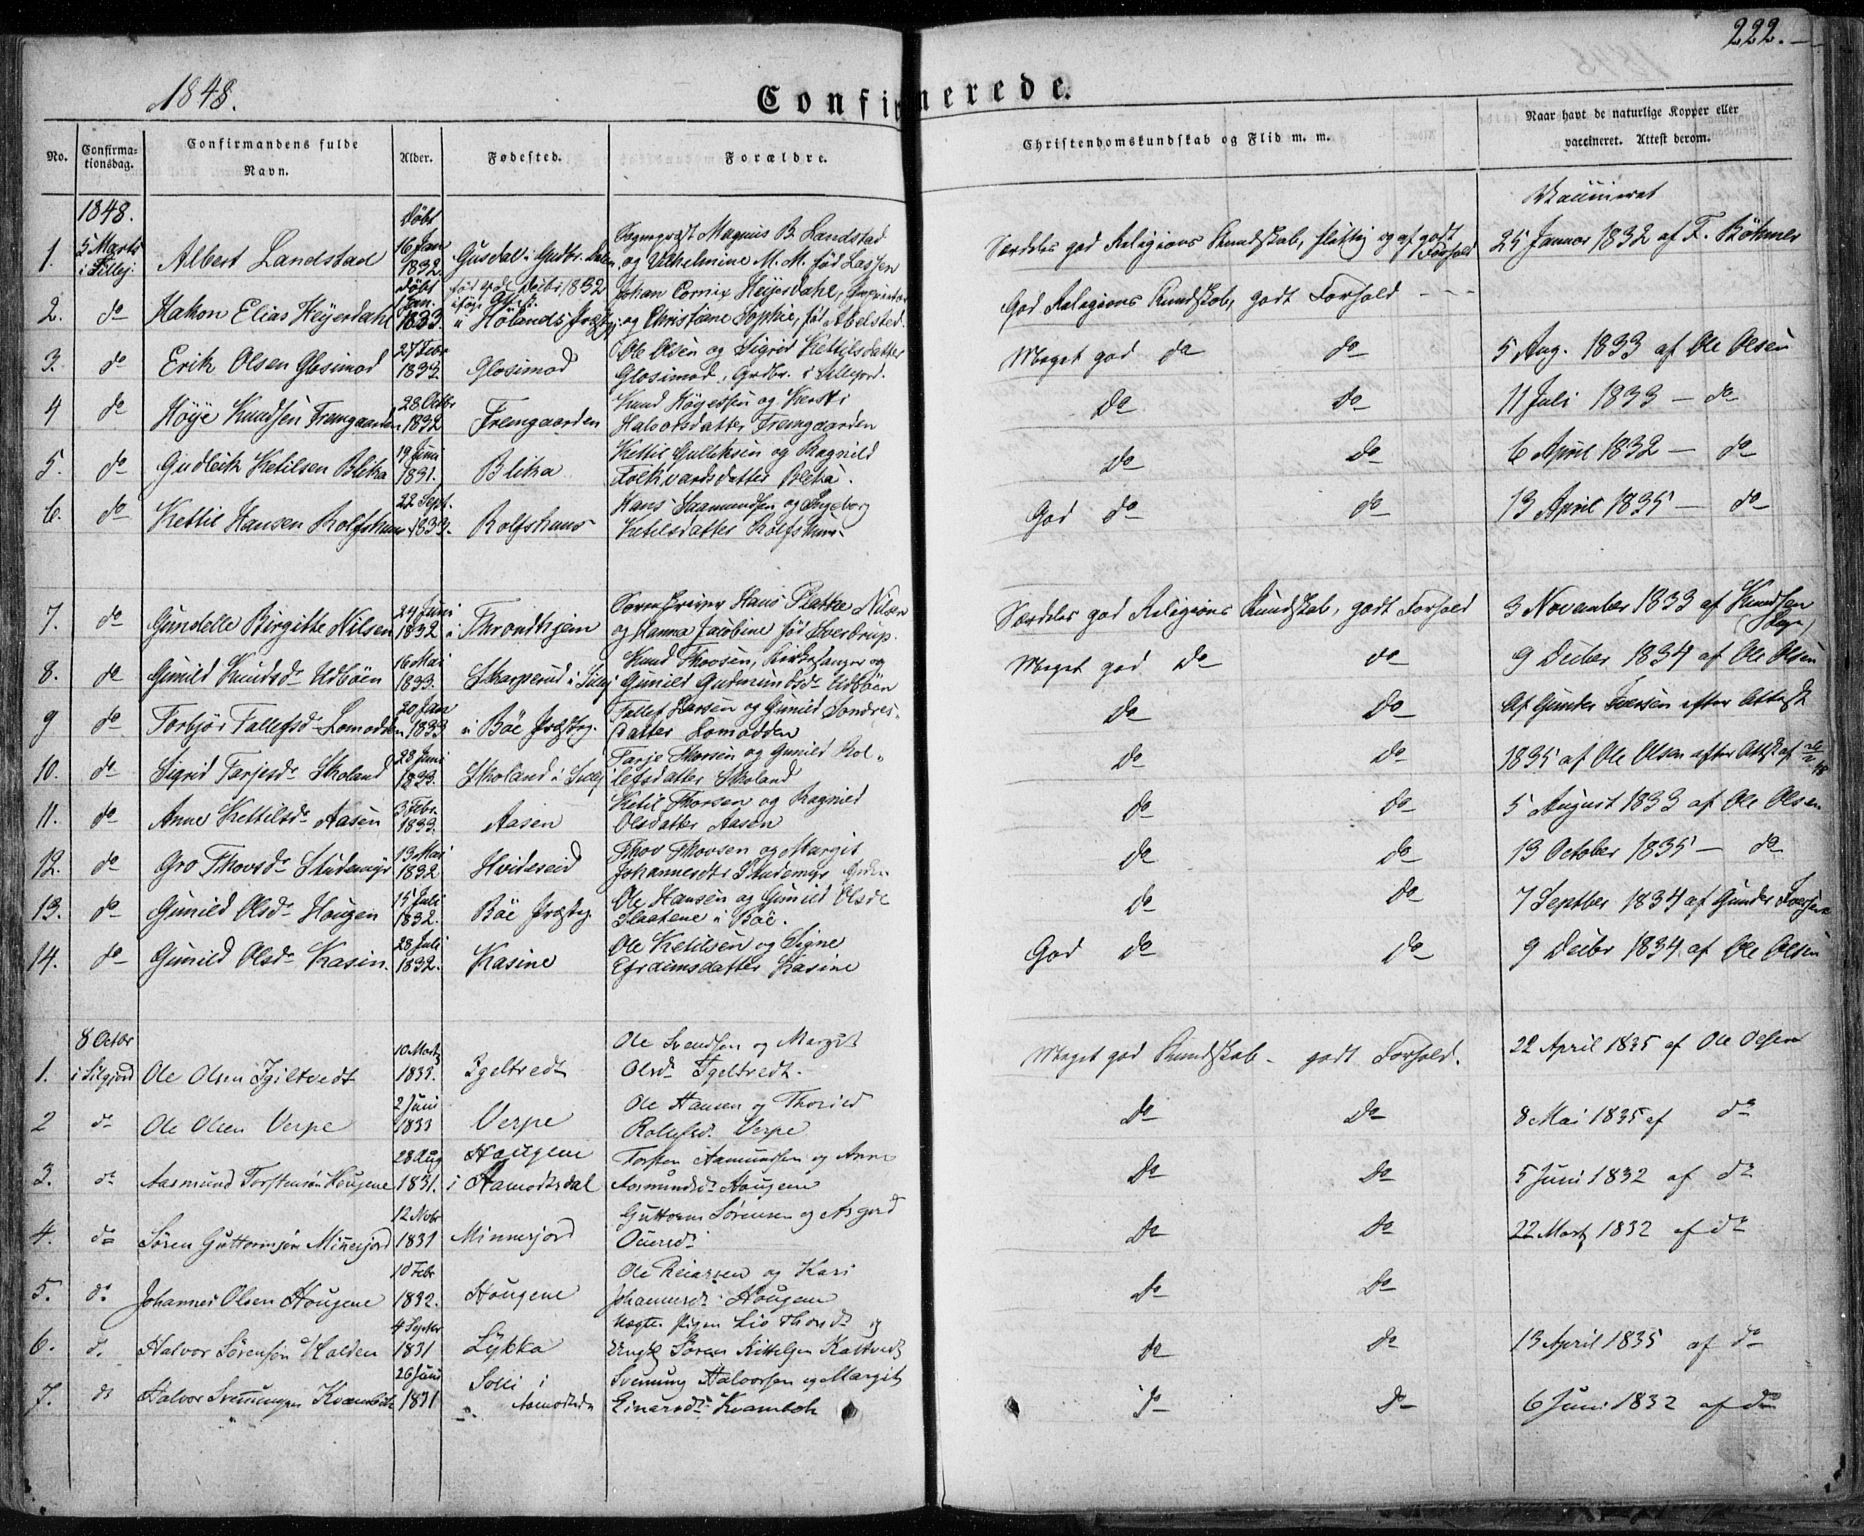 222.
1848.
Confirmerede.
No.
Confirma-
tionsdag.
Confirmandens fulde
Navn.
Alder.
Fødested.
Forældre.
Christendomskundskab og Flid m. m.
Naar havt de naturlige Kopper eller
vaccineret. Attest derom.
1848.
Døbt
Vaccineret
1. 5 Marts i Sillej: Albert Landstad 16 Jan 1832. Gusdal i Gudbr. Dalen
Sogneprest Magnus B. Landstad
og Wilhelmine M. M. fød Lassen
Særdeles god Religions Kundskab, flittig og af godt Forhold 25 Januar 1832 af F. Böhmer
2. do Hakon Elias Heyerdahl døbt 1 Jan. 1833. i Hølands Præstgj:
Johan Cornix Heyerdahl,
og Christiane Sophie, fød Abelsted.
God Religions Kundskab, godt Forhold
3. do Erik Olsen Glosimod 27 Febr 1833. Glosimod
Ole Olsen og Sigrid Kettilsdatter
Glosimod, Grdbr. i Sillejord.
Meget god do do 5 Aug. 1833 af Ole Olsen
4 do Høye Knudsen Fremgaarden 28 Octbr 1832 Fremgaarden
Knud Høyesen og Kersti
Halvorsdatter Fremgaarden
Do do 11 Juli 1833 — do
5. do Gudleik Ketilsen Blika 19 Juni 1831. Blika
Kettil Gulliksen og Ragnild
Folkvardsdatter Blika.
Do Do 6 April 1832 — do
6. do Kettil Hansen Rolfshuus 22 Sept. 1833. Rolfshuus
Hans Saamundsen og Ingeborg
Ketilsdatter Rolfshuus
God do do 13 April 1835 — do
7. do Gunelle Birgitte Nilsen 24 Juni 1832 i Throndhjem
Sorenskriver Hans Platou Nilsen
og Hanna Jacobine fød Sverdrup.
Særdeles god Religions Kundskab, godt Forhold 3 November 1833 af Knudsen
8. do Gunild Knudsd. Udbøen 16 Mai 1833. Skarperud i Sillej:
Knud Thovsen, Kirkesanger og
Gunild Gudmundsd. Udbøen
Meget god Do do 9 Decber 1834 af Ole Olsen
9 do Torbjør Tallefsd. Lomodden 20 Jan 1833 i Bøe Præstgj.
Tallef Hansen og Gunild Sondres-
datter Lomodden
Do Do Af Gunder Iversen efter Attest
10. do Sigrid Tarjesd. Skoland 28 Juni 1833. Skoland i Sillej
Tarje Thorsen og Gunild Rol-
lefsdatter Skoland
Do Do 1835 af Ole Olsen efter Attst af
11. do Anne Kettilsd. Aasen 3 Febr. 1833. Aasen
Ketil Thorsen og Ragnild
Olsdatter Aasen
Do Do 5 August 1833 af Ole Olsen
12. do Gro Thovsd. Studemyr 13 Mai 1832 Hvideseid
Thov Thovsen og Margit
Johannesdtr Studemyr
Do Do 13 October 1835 — do
13. do Gunild Olsd. Hougen 15 Juli 1832. Bøe Præstgj.
Ole Hansen og Gunild Olsdr
Slaatene i Bøe.
Do Do 7 Septber 1834 af Gunder Iversen
14. do Gunild Olsd. Kasin. 28 Juli 1832. Kasine
Ole Ketilsen og Signe
Efraimsdatter Kasine
God Do Do 9 Decbr 1834 af Ole Olsen
8 Octbr
1. i Silgjord Ole Olsen Igiltvedt 10 Marts 1833. Igeltvedt
Ole Svendsen og Margit
Olsd. Igeltvedt.
Meget god Kundskab - godt Forhold. 22 April 1835 af Ole Olsen
2 do Ole Olsen Verpe 2 Juni 1833 Verpe
Ole Hansen og Thorild
Rolefsd. Verpe
Do Do 8 Mai 1835 af do
3. do Aasmund Torstensøn Hougene 28 Aug 1831. Hougene i Aamodtsdal
Torsten Aamundsen og Anne
Aasmundsd. Hougene
Do Do 5 Juni 1832 af do
4. do Søren Guttormsøn Minnesjord 12 Nvbr 1831 Minnesjord
Guttorm Sørensen og Asgerd
Do Do 22 Marts 1832 af do
5. do Johannes Olsen Hougene 10 Febr 1832. Hougene
Ole Reiarsen og Kari
Johannesd. Hougene
Do Do
6. do Halvor Sørensøn Kalden 4 Septbr 1831 Lykka
Pigen Liv Thorsd. og
Ungk. Søren Kittelsen Kaltvedt
Do Do 13 April 1835 af do
7. do Halvor Svenungsen Kvambek 26 Juni 1831 Solli i Aamodtsda
Svenung Halvorsen og Margit
Einarsd. Kvambek
Do Do 6 Juni 1832 af do